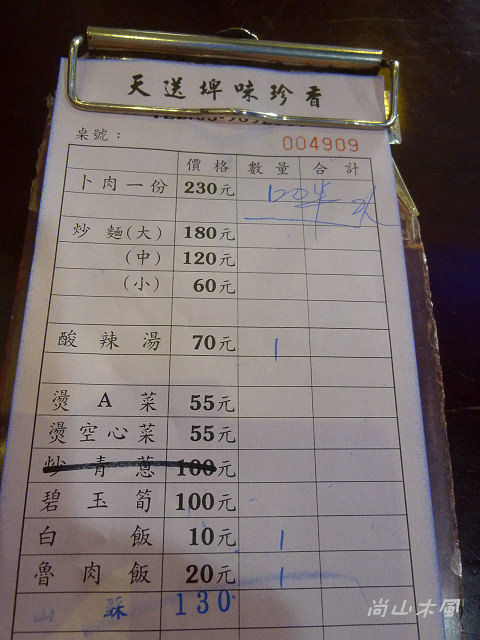 天送埤味珍香
桌號：
004909
價格 數量 合計
卜肉一份 230元
炒麵(大) 180元
(中) 120元
(小) 60元
酸辣湯 70元 1
燙A菜 55元
燙空心菜 55元
炒青蔥 100元
碧玉筍 100元
白飯 10元 1
魯肉飯 20元 1
山蘇 130
尚山木風